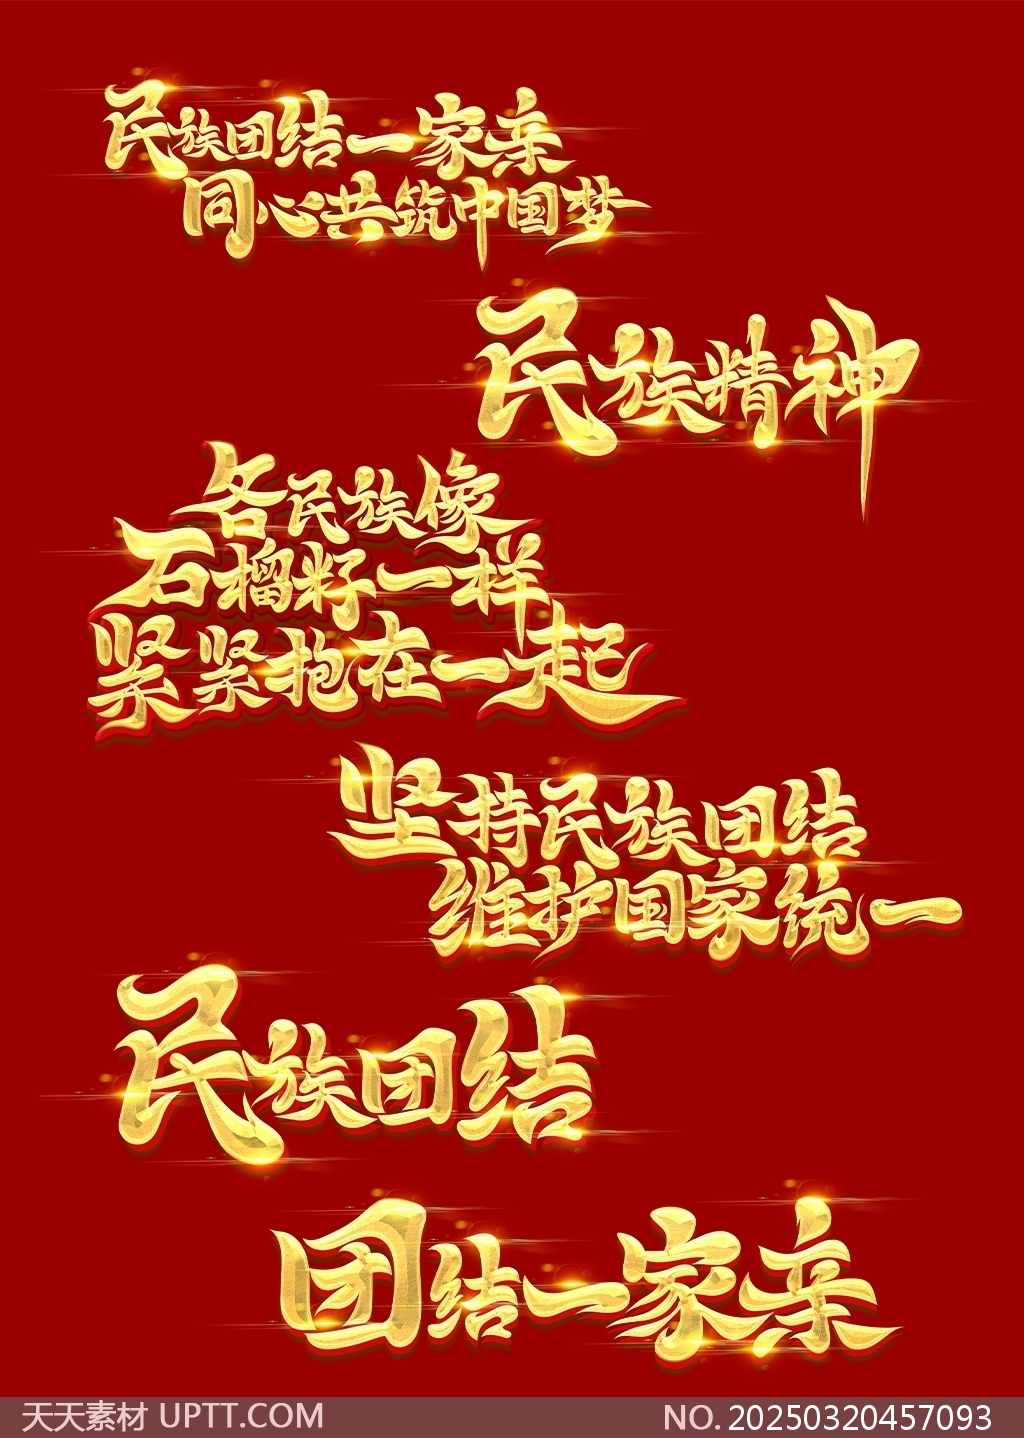 民族团结一家亲
同心共筑中国梦
民族精神
各民族像
石榴籽一样
紧紧抱在一起
坚持民族团结
维护国家统一
民族团结
团结一家亲
天天素材 UPTT.COM
NO. 20250320457093